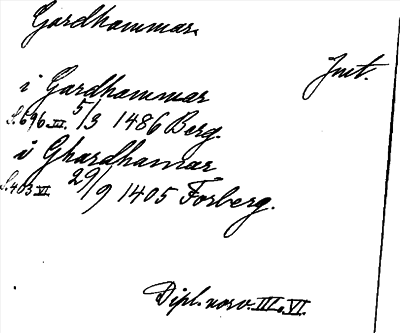 Gardhammar.
Jnt.
i Gardhammar
S. 696 III. 5/3 1486 Berg.
i Ghardhamar
S. 403 VI. 29/9 1405 Forberg.
Dipl. norv. III. VI.